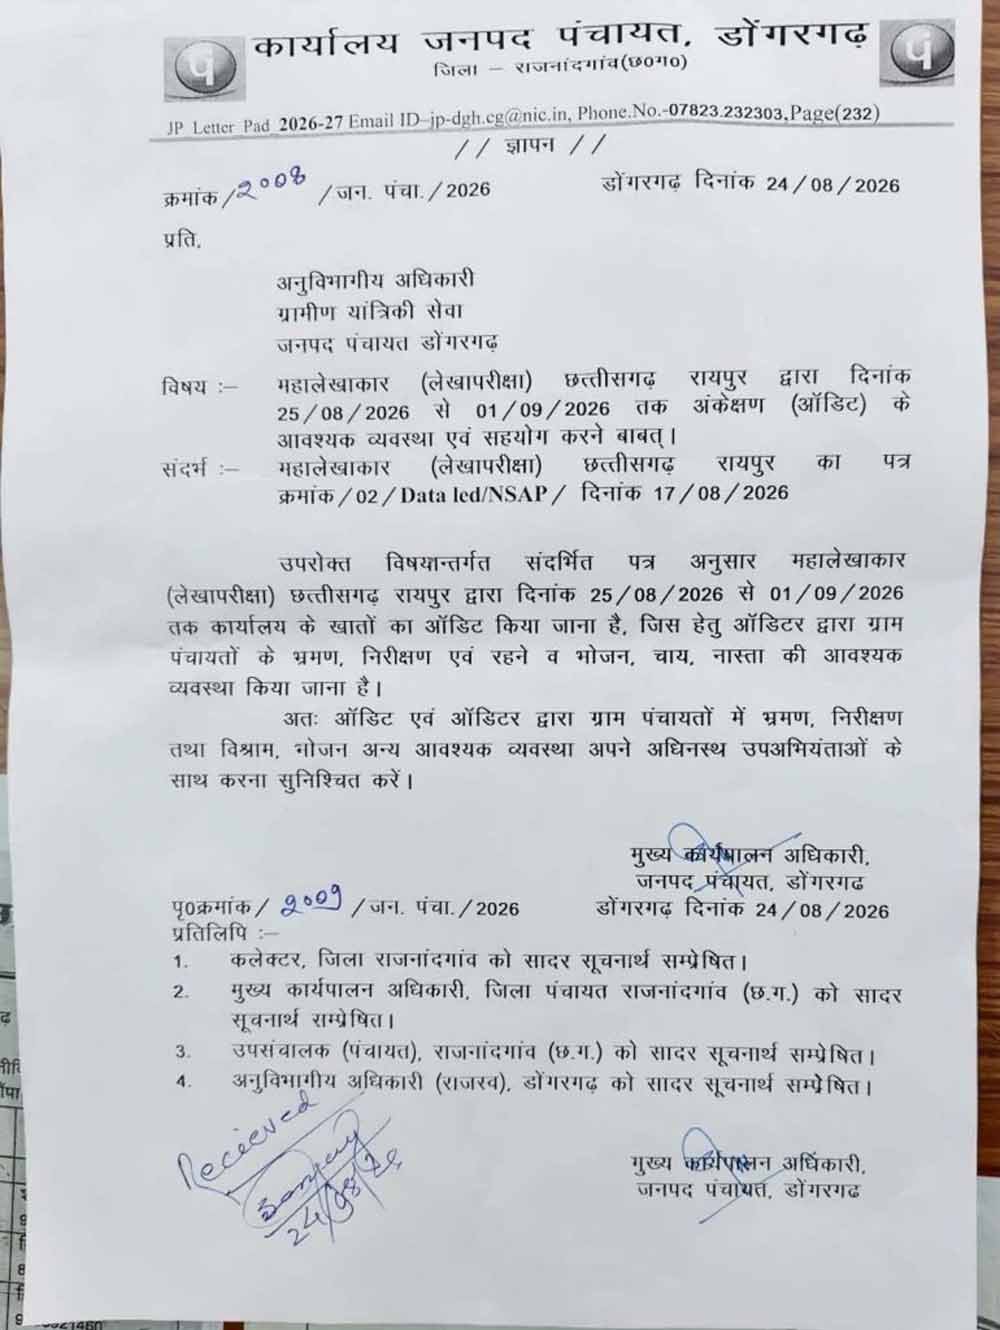 कार्यालय जनपद पंचायत, डोंगरगढ़
जिला – राजनांदगांव(छ0ग0)
JP Letter Pad 2026-27 Email ID–jp-dgh.cg@nic.in, Phone.No.-07823.232303,Page(232)
// ज्ञापन //
क्रमांक /2008 /जन. पंचा./2026 डोंगरगढ़ दिनांक 24/08/2026
प्रति,
अनुविभागीय अधिकारी
ग्रामीण यांत्रिकी सेवा
जनपद पंचायत डोंगरगढ़
विषय :– महालेखाकार (लेखापरीक्षा) छत्तीसगढ़ रायपुर द्वारा दिनांक
25/08/2026 से 01/09/2026 तक अंकेक्षण (ऑडिट) के
आवश्यक व्यवस्था एवं सहयोग करने बाबत्।
संदर्भ :– महालेखाकार (लेखापरीक्षा) छत्तीसगढ़ रायपुर का पत्र
क्रमांक/02/Data led/NSAP/ दिनांक 17/08/2026
उपरोक्त विषयान्तर्गत संदर्भित पत्र अनुसार महालेखाकार
(लेखापरीक्षा) छत्तीसगढ़ रायपुर द्वारा दिनांक 25/08/2026 से 01/09/2026
तक कार्यालय के खातों का ऑडिट किया जाना है, जिस हेतु ऑडिटर द्वारा ग्राम
पंचायतों के भ्रमण, निरीक्षण एवं रहने व भोजन, चाय, नास्ता की आवश्यक
व्यवस्था किया जाना है।
अतः ऑडिट एवं ऑडिटर द्वारा ग्राम पंचायतों में भ्रमण, निरीक्षण
तथा विश्राम, भोजन अन्य आवश्यक व्यवस्था अपने अधिनस्थ उपअभियंताओं के
साथ करना सुनिश्चित करें।
मुख्य कार्यपालन अधिकारी,
जनपद पंचायत, डोंगरगढ
पृ0क्रमांक/ 2009 /जन. पंचा./2026 डोंगरगढ़ दिनांक 24/08/2026
प्रतिलिपि :–
1. कलेक्टर, जिला राजनांदगांव को सादर सूचनार्थ सम्प्रेषित।
2. मुख्य कार्यपालन अधिकारी, जिला पंचायत राजनांदगांव (छ.ग.) को सादर
सूचनार्थ सम्प्रेषित।
3. उपसंचालक (पंचायत), राजनांदगांव (छ.ग.) को सादर सूचनार्थ सम्प्रेषित।
4. अनुविभागीय अधिकारी (राजस्व), डोंगरगढ़ को सादर सूचनार्थ सम्प्रेषित।
Recieved
24/08/26
मुख्य कार्यपालन अधिकारी,
जनपद पंचायत, डोंगरगढ